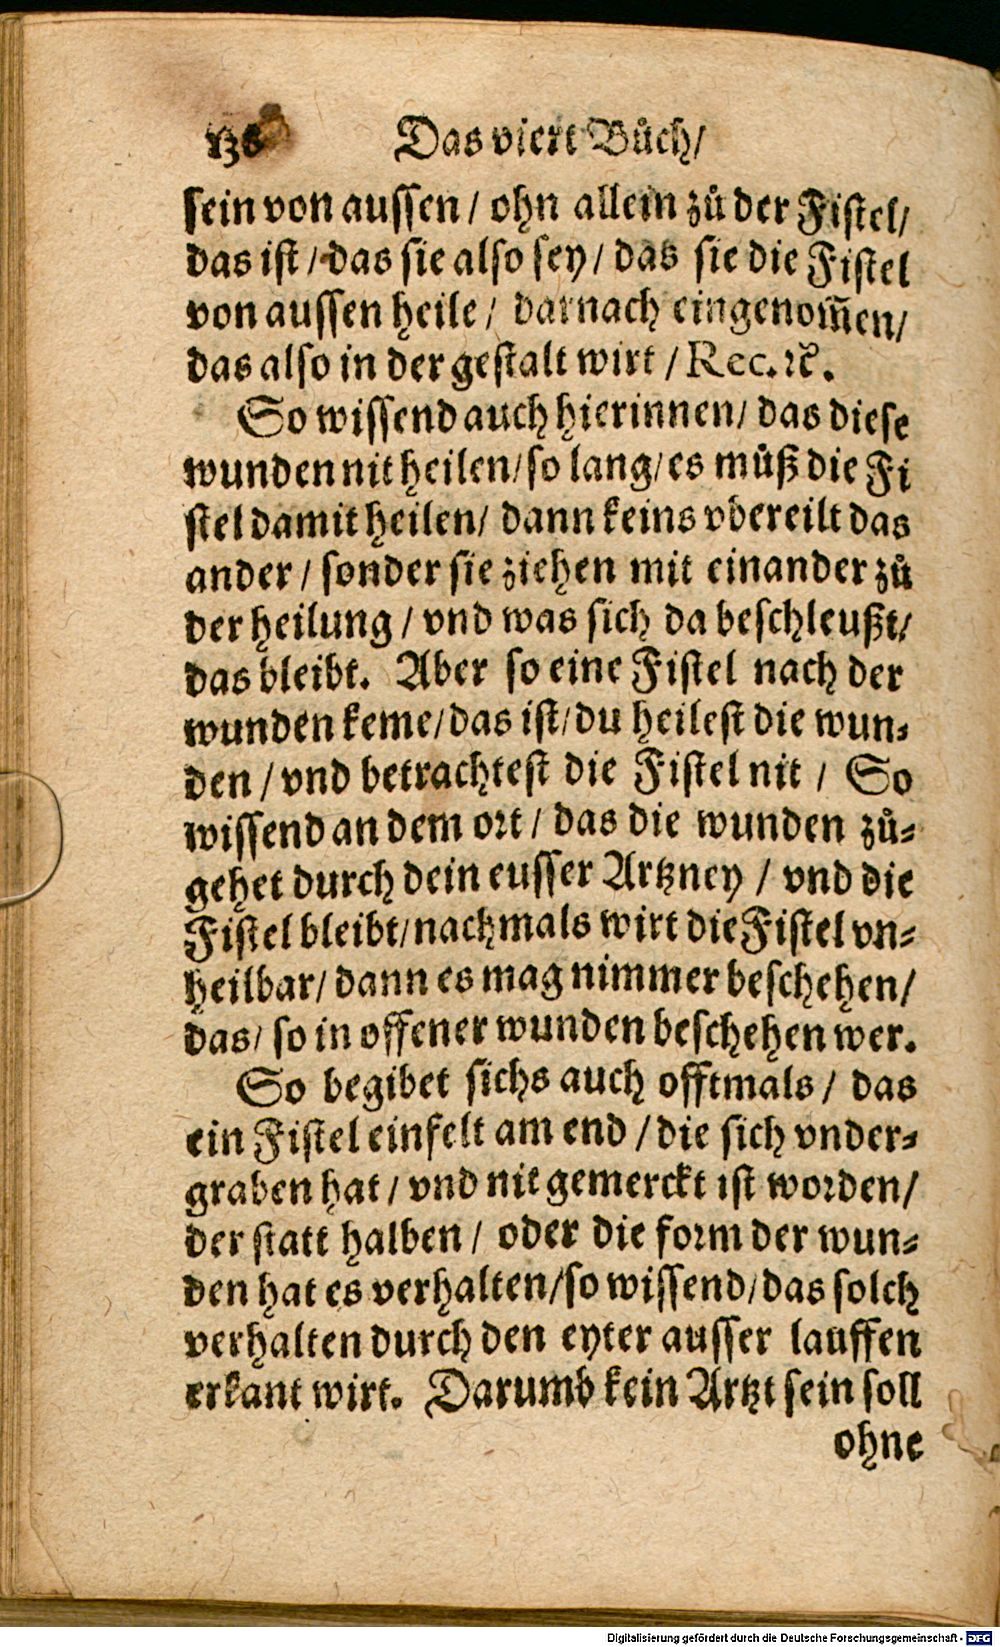 136 Das viert Bůch/
sein von aussen/ ohn allein zů der Fistel/
das ist/ das sie also sey/ das sie die Fistel
von aussen heile/ darnach eingenom̃en/
das also in der gestalt wirt/ Rec. ꝛc̃.
So wissend auch hierinnen/ das diese
wunden nit heilen/ so lang/ es můß die Fi
stel damit heilen/ dann keins vbereilt das
ander/ sonder sie ziehen mit einander zů
der heilung/ vnd was sich da beschleußt/
das bleibt. Aber so eine Fistel nach der
wunden keme/ das ist/ du heilest die wun-
den/ vnd betrachtest die Fistel nit/ So
wissend an dem ort/ das die wunden zů-
gehet durch dein eusser Artzney/ vnd die
Fistel bleibt/ nachmals wirt die Fistel vn-
heilbar/ dann es mag nimmer beschehen/
das/ so in offener wunden beschehen wer.
So begibet sichs auch offtmals/ das
ein Fistel einfelt am end/ die sich vnder-
graben hat/ vnd nit gemerckt ist worden/
der statt halben/ oder die form der wun-
den hat es verhalten/ so wissend/ das solch
verhalten durch den eyter ausser lauffen
erkant wirt. Darumb kein Artzt sein soll
ohne
Digitalisierung gefördert durch die Deutsche Forschungsgemeinschaft - DFG